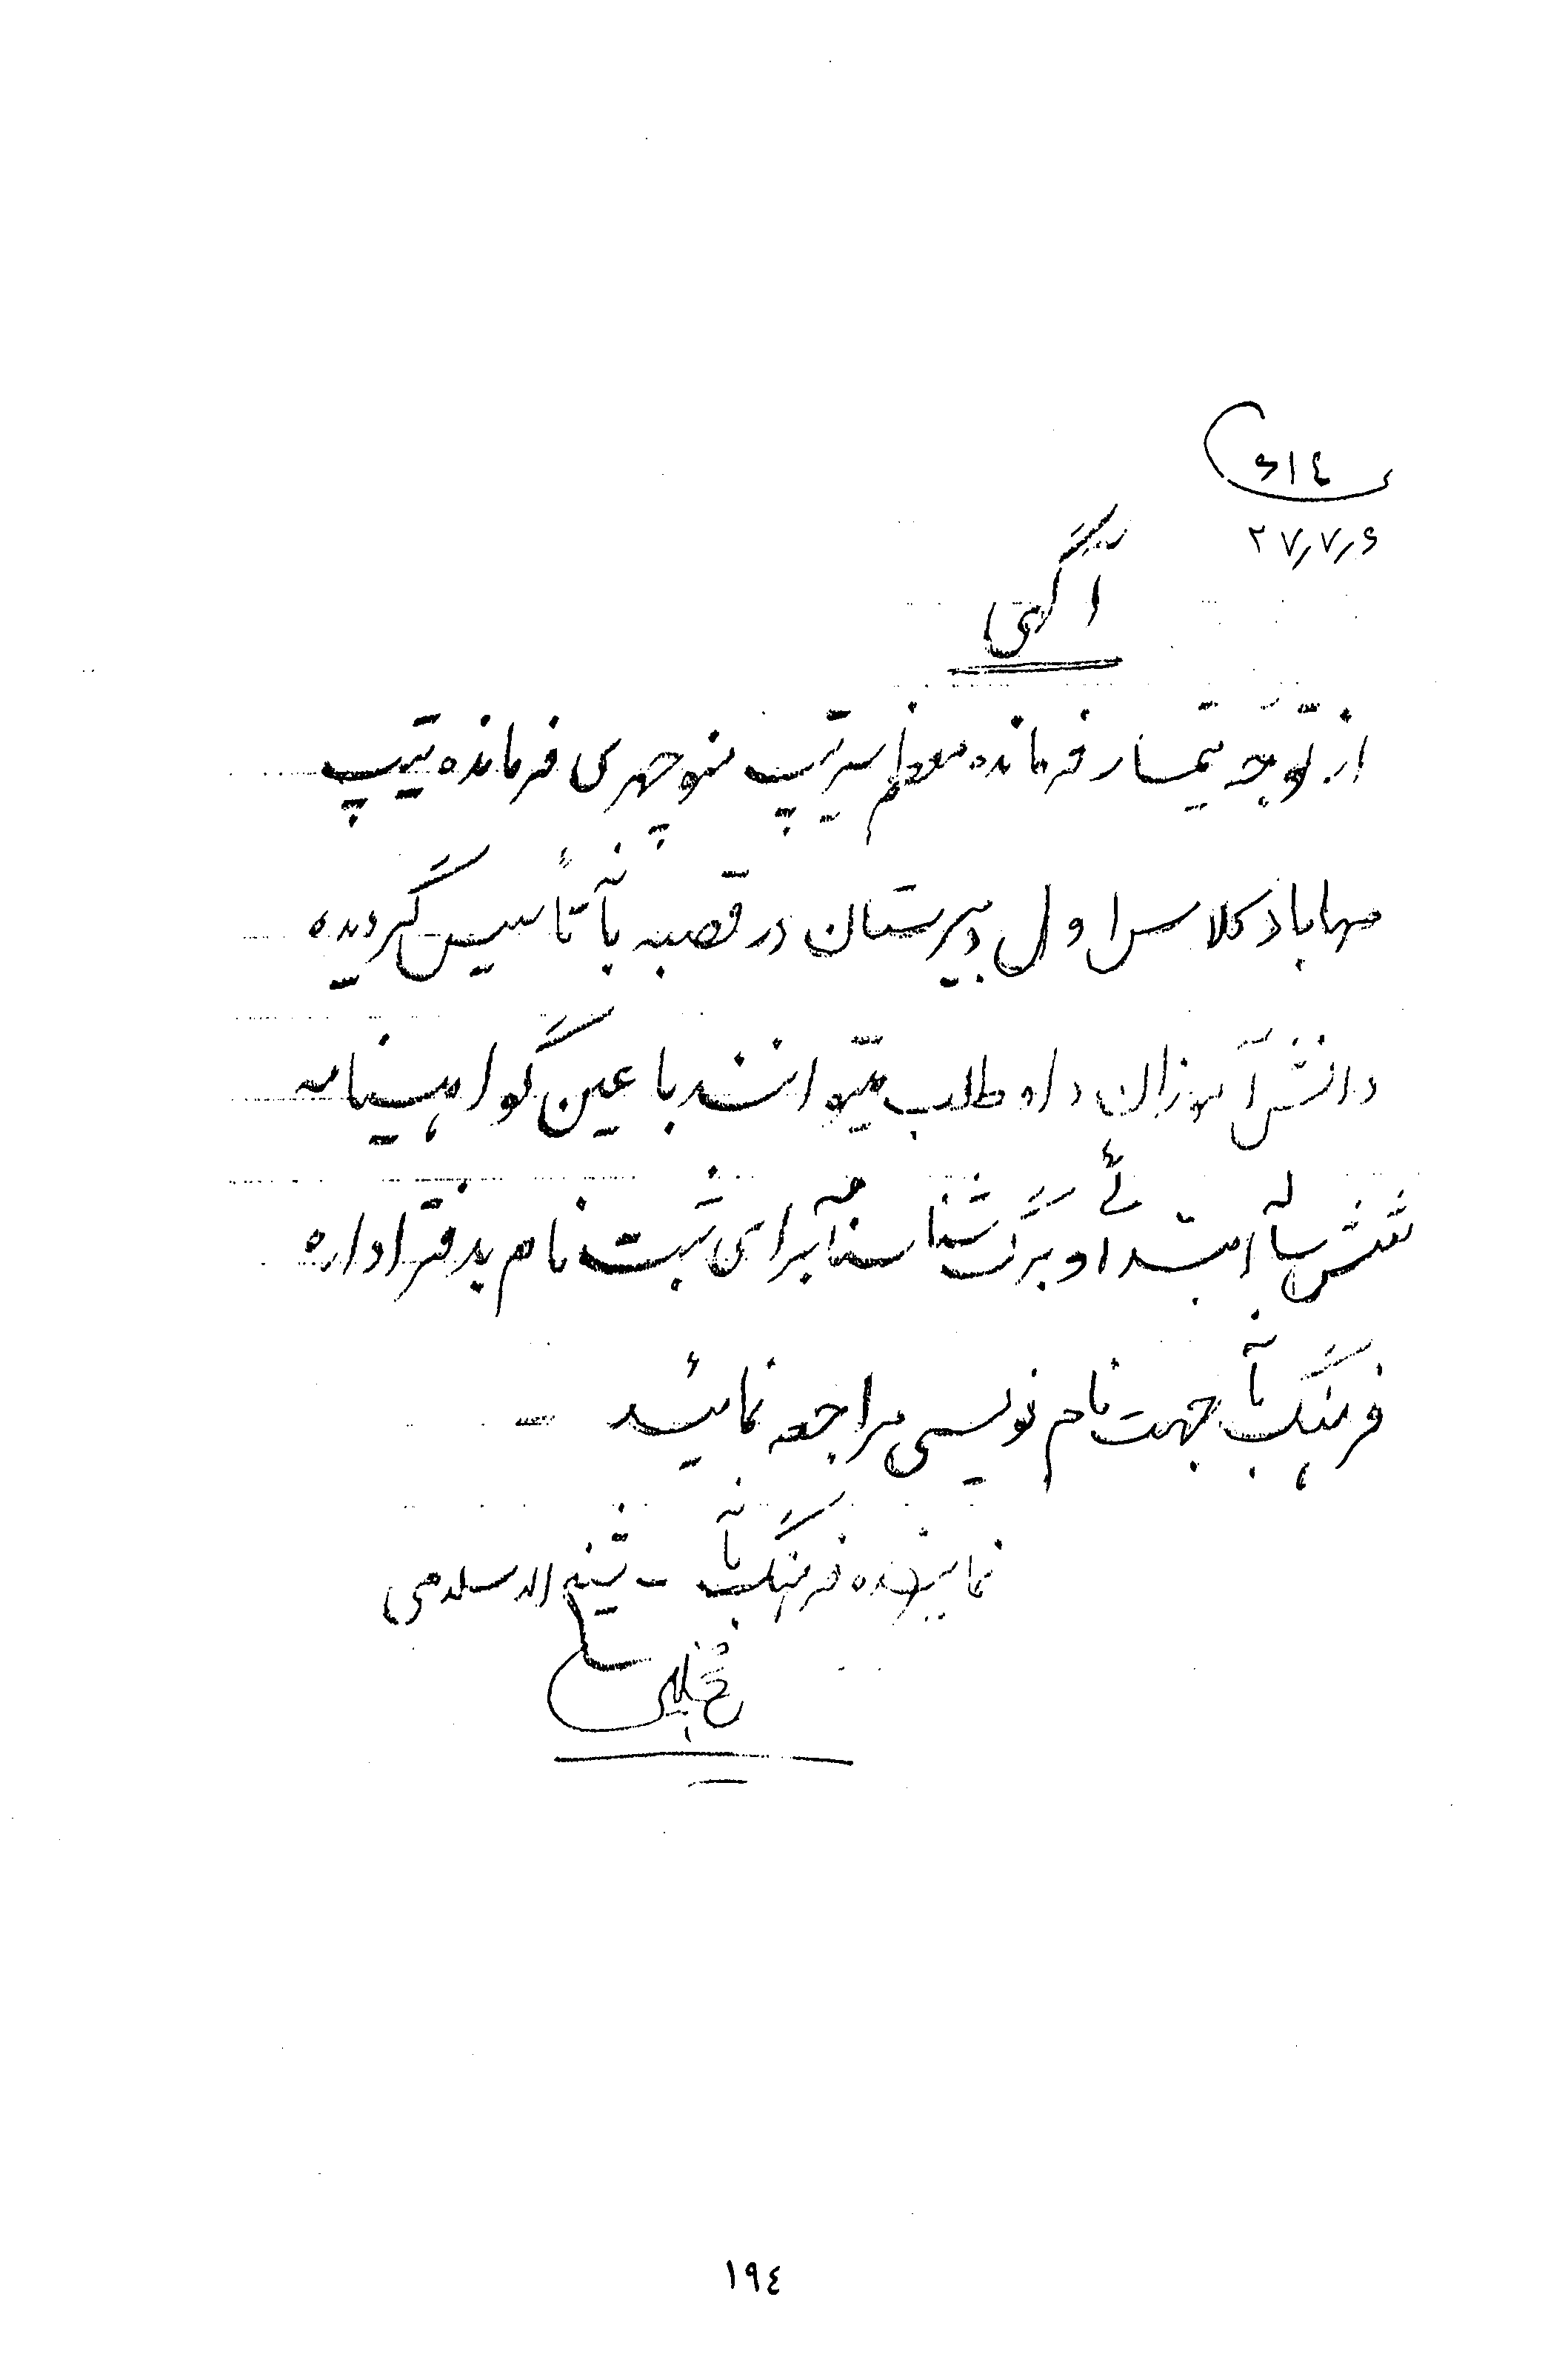 ٦١٤
٢٧/٧/٦
آگهی
از توجه تیمسار فرمانده معظم سرتیپ منوچهری فرمانده تیپ
مهاباد کلاس اول دبیرستان در قصبه بانه تأسیس گردیده
دانش آموزان داوطلب میتوانند با عین گواهینامه
شش ساله ابتدائی و برگ شناسنامه برای ثبت نام بدفتر اداره
فرهنگ بانه جهت نام نویسی مراجعه نمائید –
نماینده فرهنگ بانه – شیخ الاسلامی
١٩٤